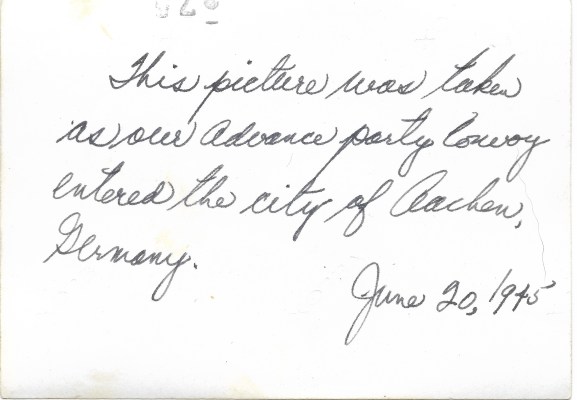 This picture was taken
as our advance party convoy
entered the city of Aachen,
Germany.
June 20, 1945